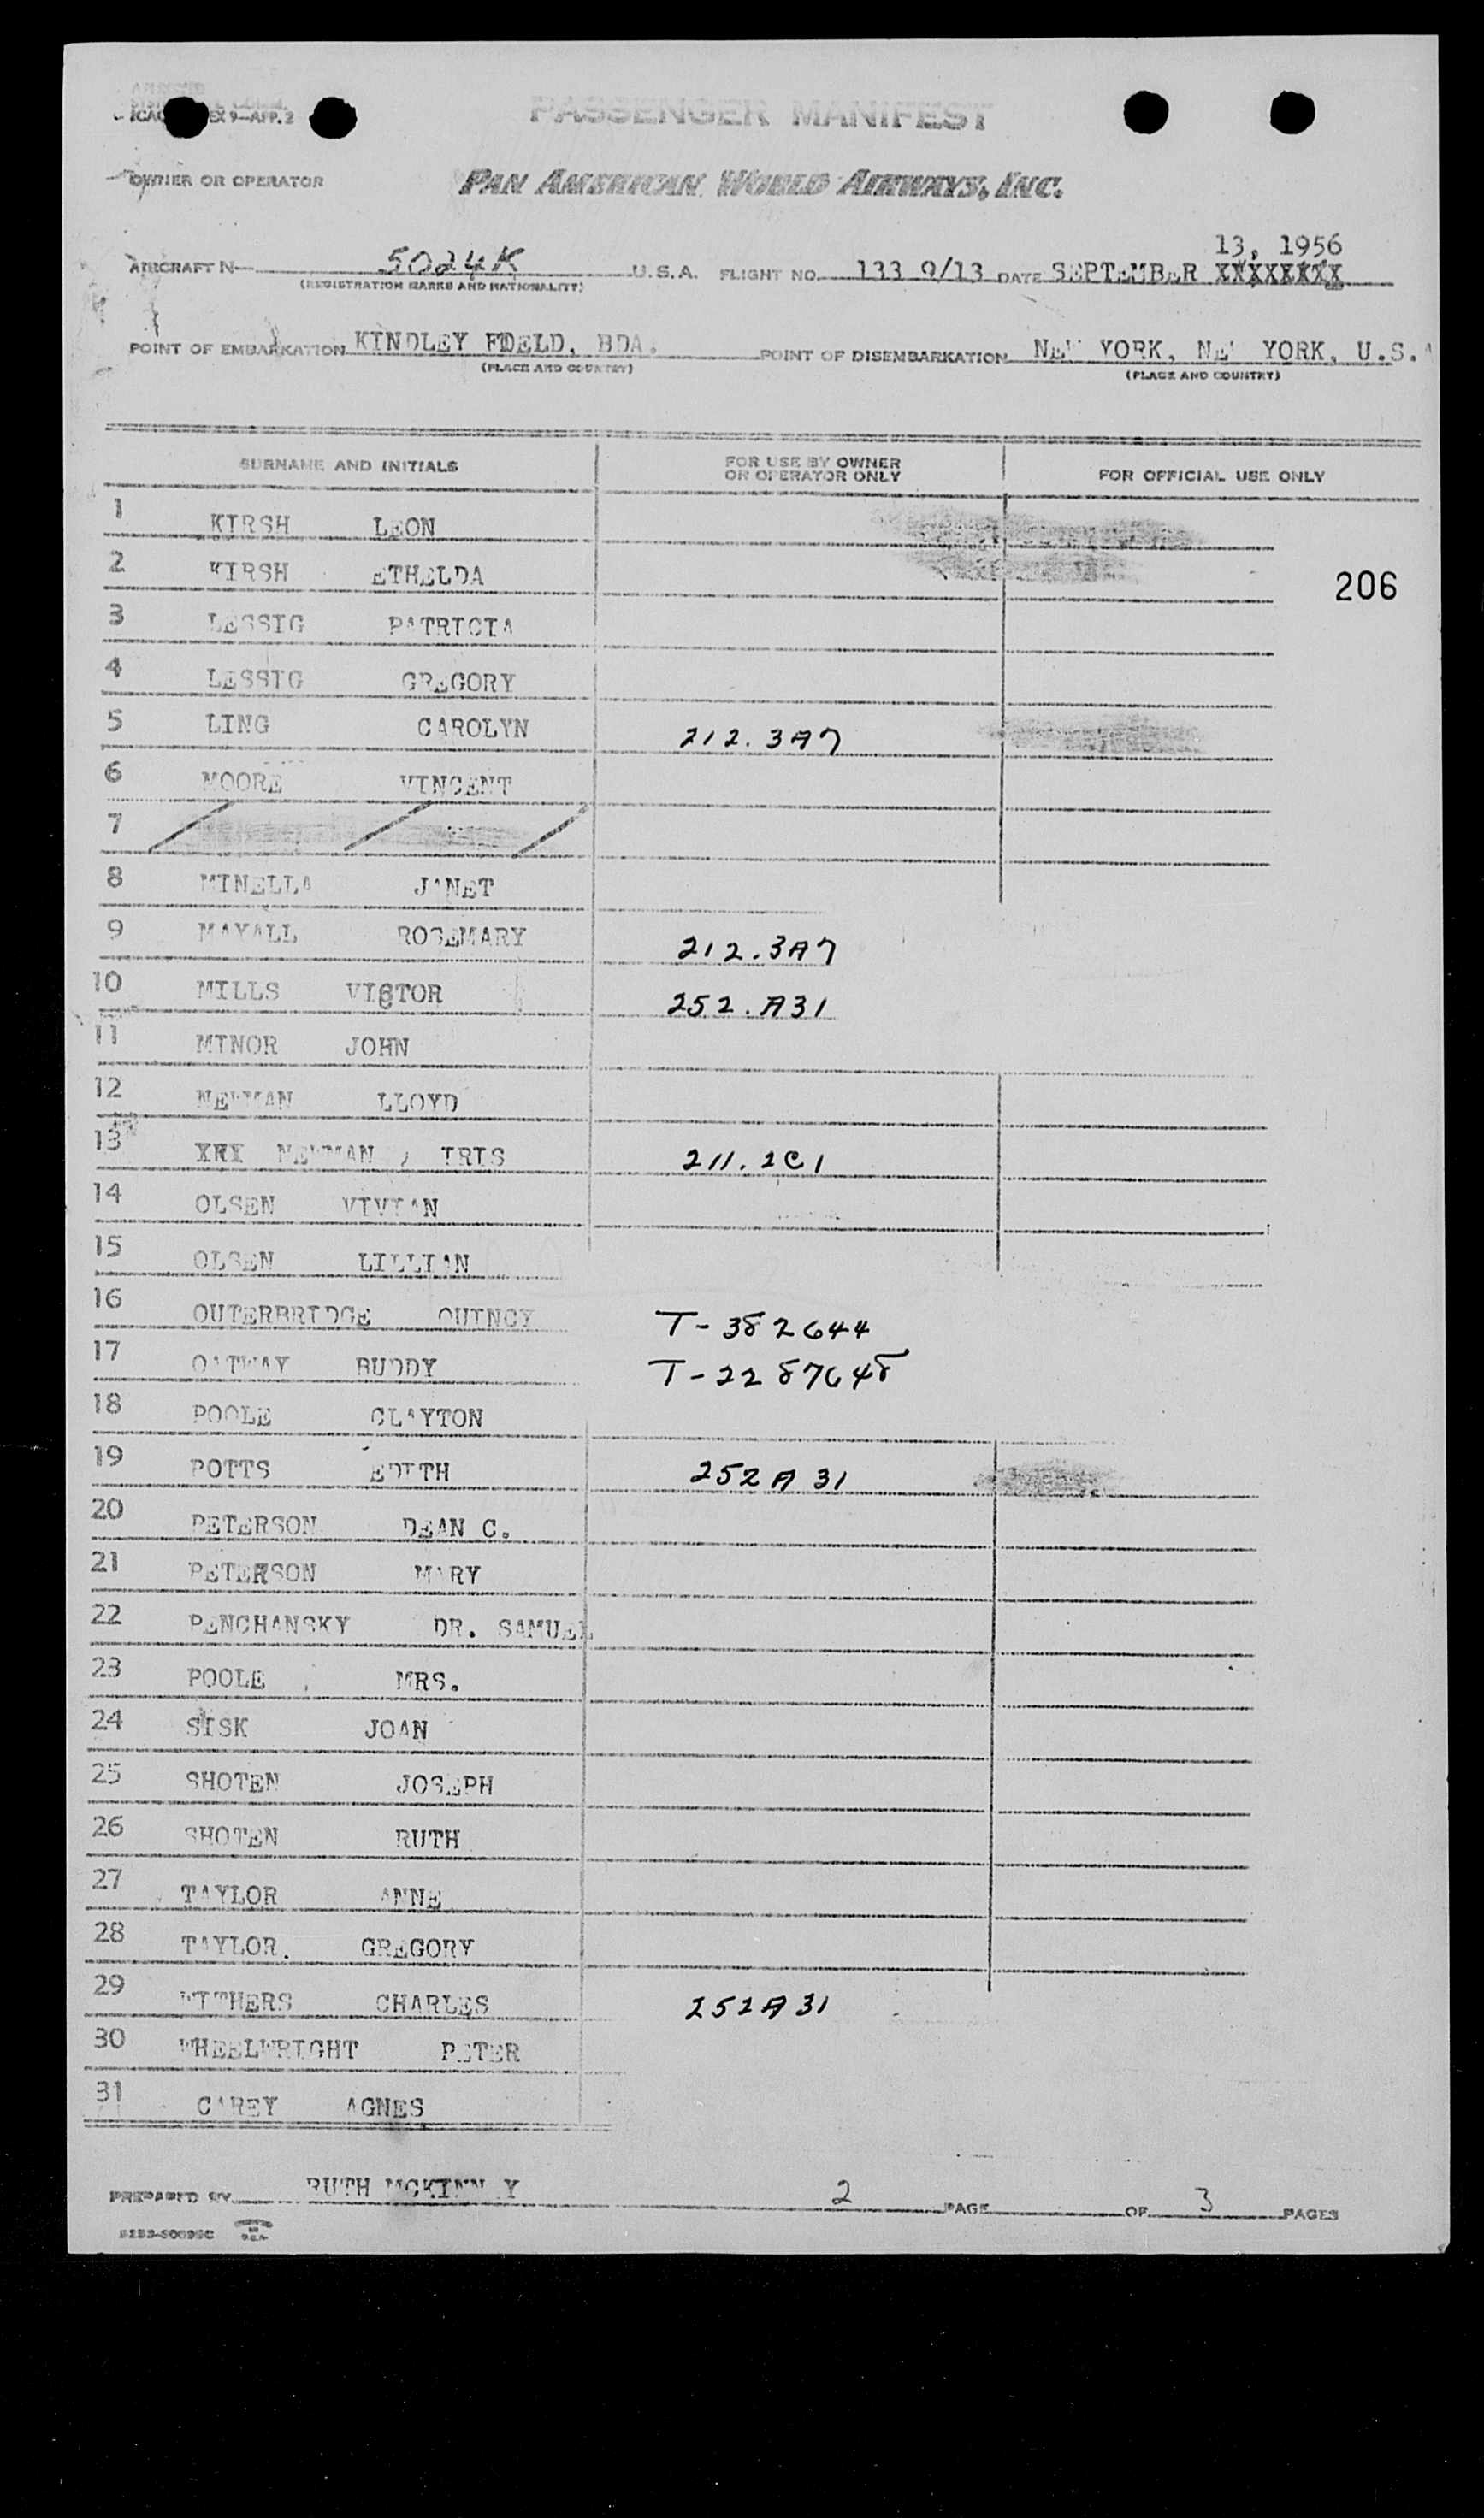 ICAO EX 9—APP. 2
PASSENGER MANIFEST
OWNER OR OPERATOR PAN AMERICAN WORLD AIRWAYS, INC.
13, 1956
AIRCRAFT N— 5024K U.S.A. FLIGHT NO. 133 9/13 DATE SEPTEMBER XXXXXXXX
(REGISTRATION MARKS AND NATIONALITY)
POINT OF EMBARKATION KINDLEY FIELD, BDA. POINT OF DISEMBARKATION NEW YORK, NEW YORK, U.S.A
(PLACE AND COUNTRY) (PLACE AND COUNTRY)
SURNAME AND INITIALS FOR USE BY OWNER OR OPERATOR ONLY FOR OFFICIAL USE ONLY
1 KIRSH LEON
2 KIRSH ETHELDA 206
3 LESSIG PATRICIA
4 LESSIG GREGORY
5 LING CAROLYN 212.3A7
6 MOORE VINCENT
7
8 MINELLA JANET
9 MAYALL ROSEMARY 212.3A7
10 MILLS VICTOR 252.A31
11 MINOR JOHN
12 NEWMAN LLOYD
13 XXX NEWMAN , IRIS 211.2C1
14 OLSEN VIVIAN
15 OLSEN LILLIAN
16 OUTERBRIDGE QUINCY T-382644
17 OATWAY BUDDY T-2287648
18 POOLE CLAYTON
19 POTTS EDITH 252A31
20 PETERSON DEAN C.
21 PETERSON MARY
22 PENCHANSKY DR. SAMUEL
23 POOLE MRS.
24 SISK JOAN
25 SHOTEN JOSEPH
26 SHOTEN RUTH
27 TAYLOR ANNE
28 TAYLOR. GREGORY
29 WITHERS CHARLES 252A31
30 WHEELWRIGHT PETER
31 CAREY AGNES
PREPARED BY RUTH MCKINNEY 2 PAGE OF 3 PAGES